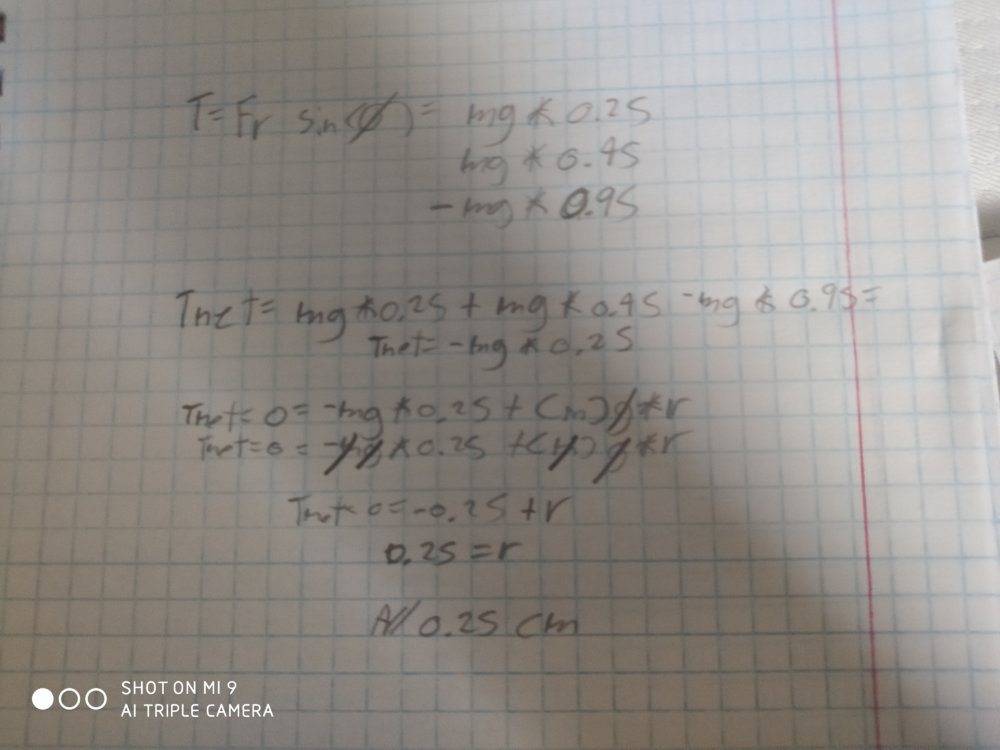 T = Fr sin(φ) = mg * 0.25
mg * 0.45
- mg * 0.95
Tnet = mg * 0.25 + mg * 0.45 - mg * 0.95 =
Tnet = -mg * 0.25
Tnet = 0 = -mg * 0.25 + (m) g * r
Tnet = 0 = -mg * 0.25 + (m) g * r
Tnet 0 = -0.25 + r
0.25 = r
A// 0.25 cm
SHOT ON MI 9
AI TRIPLE CAMERA